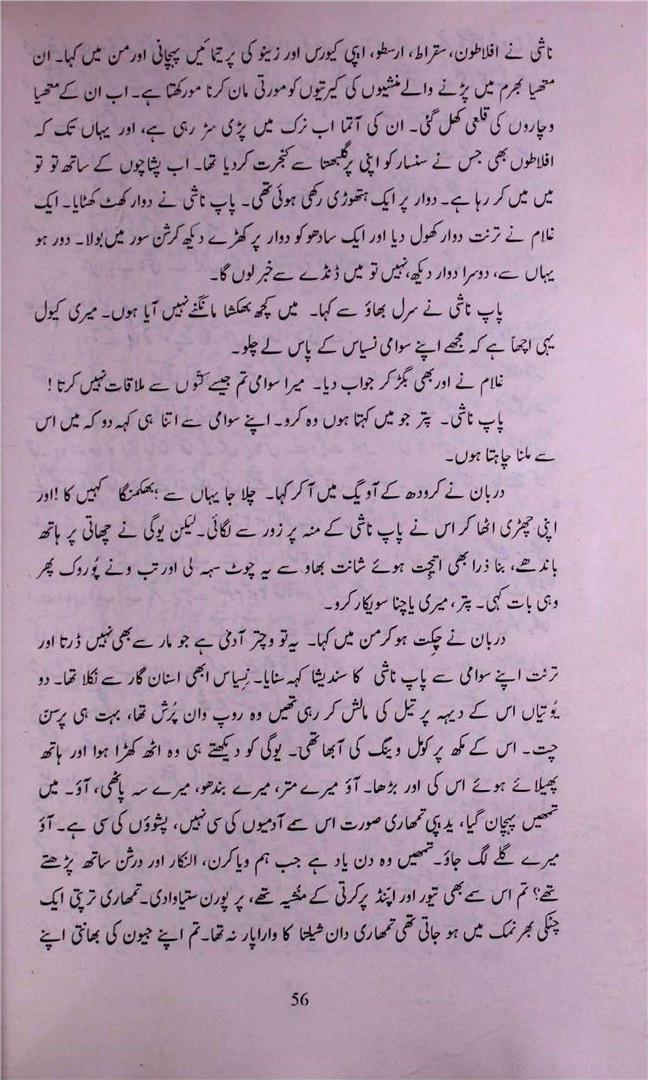 ناشی نے افلاطون، سقراط، ارسطو، ایپی کیورس اور زینو کی پریتمائیں پہچانی اور من میں کہا۔ ان
متھیا بھرم میں پڑنے والے منشیوں کی کیرتیوں کو مورتی مان کرنا مورکھتا ہے۔ اب ان کے متھیا
وچاروں کی قلعی کھل گئی۔ ان کی آتما اب نرک میں پڑی سڑ رہی ہے، اور یہاں تک کہ
افلاطوں بھی جس نے سنسار کو اپنی پرگلبھتا سے گنجرت کردیا تھا۔ اب پشاچوں کے ساتھ تو تو
میں میں کر رہا ہے۔ دوار پر ایک ہتھوڑی رکھی ہوئی تھی۔ پاپ ناشی نے دوار کھٹ کھٹایا۔ ایک
غلام نے ترنت دوار کھول دیا اور ایک سادھو کو دوار پر کھڑے دیکھ کرشن سور میں بولا۔ دور ہو
یہاں سے، دوسرا دوار دیکھ، نہیں تو میں ڈنڈے سے خبر لوں گا۔
پاپ ناشی نے سرل بھاؤ سے کہا۔ میں کچھ بھکشا مانگنے نہیں آیا ہوں۔ میری کیول
یہی اچھا ہے کہ مجھے اپنے سوامی نسیاس کے پاس لے چلو۔
غلام نے اور بھی بگڑ کر جواب دیا۔ میرا سوامی تم جیسے کتوں سے ملاقات نہیں کرتا!
پاپ ناشی۔ پتر جو میں کہتا ہوں وہ کرو۔ اپنے سوامی سے اتنا ہی کہہ دو کہ میں اس
سے ملنا چاہتا ہوں۔
دربان نے کرودھ کے آویگ میں آکر کہا۔ چلا جا یہاں سے؛ بھکمنگا کہیں کا! اور
اپنی چھڑی اٹھا کر اس نے پاپ ناشی کے منہ پر زور سے لگائی۔ لیکن یوگی نے چھاتی پر ہاتھ
باندھے، بنا ذرا بھی اتیجت ہوئے شانت بھاو سے یہ چوٹ سہہ لی اور تب ونے پوروک پھر
وہی بات کہی۔ پتر، میری یاچنا سویکار کرو۔
دربان نے چکت ہو کر من میں کہا۔ یہ تو وچتر آدمی ہے جو مار سے بھی نہیں ڈرتا اور
ترنت اپنے سوامی سے پاپ ناشی کا سندیشا کہہ سنایا۔ نسیاس ابھی اسنان گار سے نکلا تھا۔ دو
یُوتیاں اس کے دیہہ پر تیل کی مالش کر رہی تھیں وہ روپ وان پرش تھا، بہت ہی پرسن
چت۔ اس کے مکھ پر کومل وینگ کی آبھا تھی۔ یوگی کو دیکھتے ہی وہ اٹھ کھڑا ہوا اور ہاتھ
پھیلائے ہوئے اس کی اور بڑھا۔ آؤ میرے متر، میرے بندھو، میرے سہ پاٹھی، آؤ۔ میں
تمھیں پہچان گیا، یدیپی تمھاری صورت اس سے آدمیوں کی سی نہیں، پشوؤں کی سی ہے۔ آؤ
میرے گلے لگ جاؤ۔ تمھیں وہ دن یاد ہے جب ہم ویاکرن، النکار اور درشن ساتھ پڑھتے
تھے؟ تم اس سے بھی تیور اور اپنڈ پرکرتی کے مشیہ تھے، پر پورن ستیاوادی۔ تمھاری ترپتی ایک
چٹکی بھر نمک میں ہو جاتی تھی تمھاری دان شیلتا کا وارا پار نہ تھا۔ تم اپنے جیون کی بھانتی اپنے
56